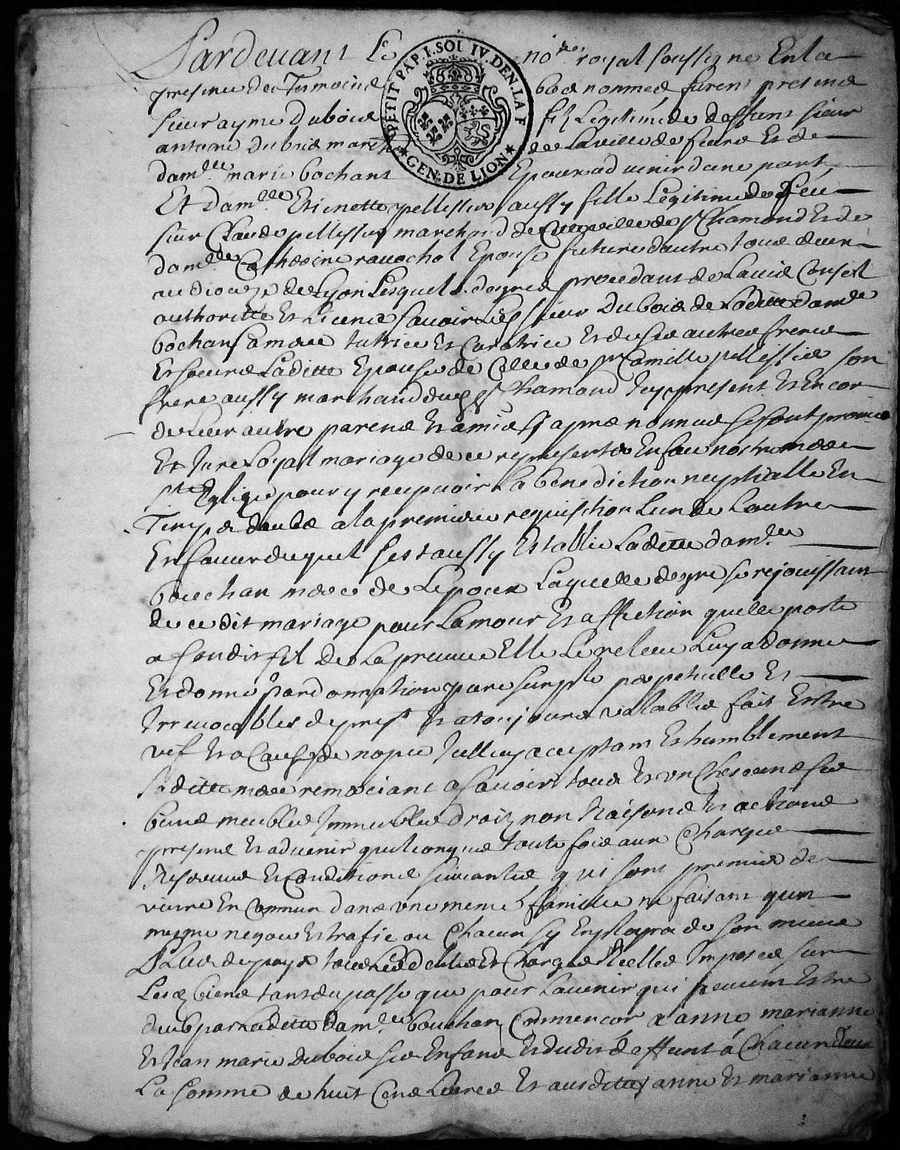 Pardevant Le no.re royal soussigne En la
presence des Temoins bas nommés furent presens
sieur ayme dubois fils Legitime de deffunt sieur
antoine dubois march de La ville de et de
dam.lle marie bochant Epoux advenir dune part
Et dam.lle Etienette pellissier aussy fille Legitime de feu
sieur Claude pellissier marchand de Cette ville de st Chamond et de
dam.lle Catherine ravachol Epouse future dautre tous deux
au dioceze de Lyon Lesquels de gré procedans de Lavis Conseil
authorite et Licence savoir Led sieur Dubois de Laditte dam.lle
bochan sa mere tutrice et Curatrice et de ses autres freres
Et soeurs Laditte Epouse de Celle de sr Camille pellissier son
frere aussy marchand dud st Chamond Icy present et Encor
de Leur autre parens et amis Cy apres nommés se sont promis
Et Jure Loyal mariage de ce representer En face nostre mere
ste Eglise pour y recepvoir La benediction neptialle En
Temps deube a la premiere requisition Lun de Lautre
En faveur duquel sest aussy Establie Laditte dam.lle
bouchan mere de Lepoux Laquelle de gre se rejouissant
de ce dit mariage pour Lamour et affection quelle porte
a son dit fils de La presence Elle Le releve Luy a donné
Et donne par donnation pure simple perpetuelle et
Irrevocables de prest et a toujours vallable fait Entre
vif et a Cause de nopce Icelluy acceptant et humblement
saditte mere remerciant a savoir tous et un Chescuns ses
biens meubles Immeubles droits noms Raisons et actions
presens et advenir quelconque toute fois aux Charges
Reserves et Conditions suivantes qui sont premier de
vivre En Commun dans une meme famille ne faisant quun
mesme negoce et trafic ou Chacun sy Employra de son mieux
Plus de payer tous Les debtes et Charges Reelles Imposés sur
Les biens tant du passé que pour Lavenir qui peuvent Estre
dub par Laditte dam.lle bouchan Commencer a anne marianne
Et Jean marie dubois ses Enfans et dudit deffunt á Chacun deux
La somme de huit Cens Livres et ausdittes anne et marianne
PETIT PAP. I. SOL IV. DEN. LA F
GEN. DE LION